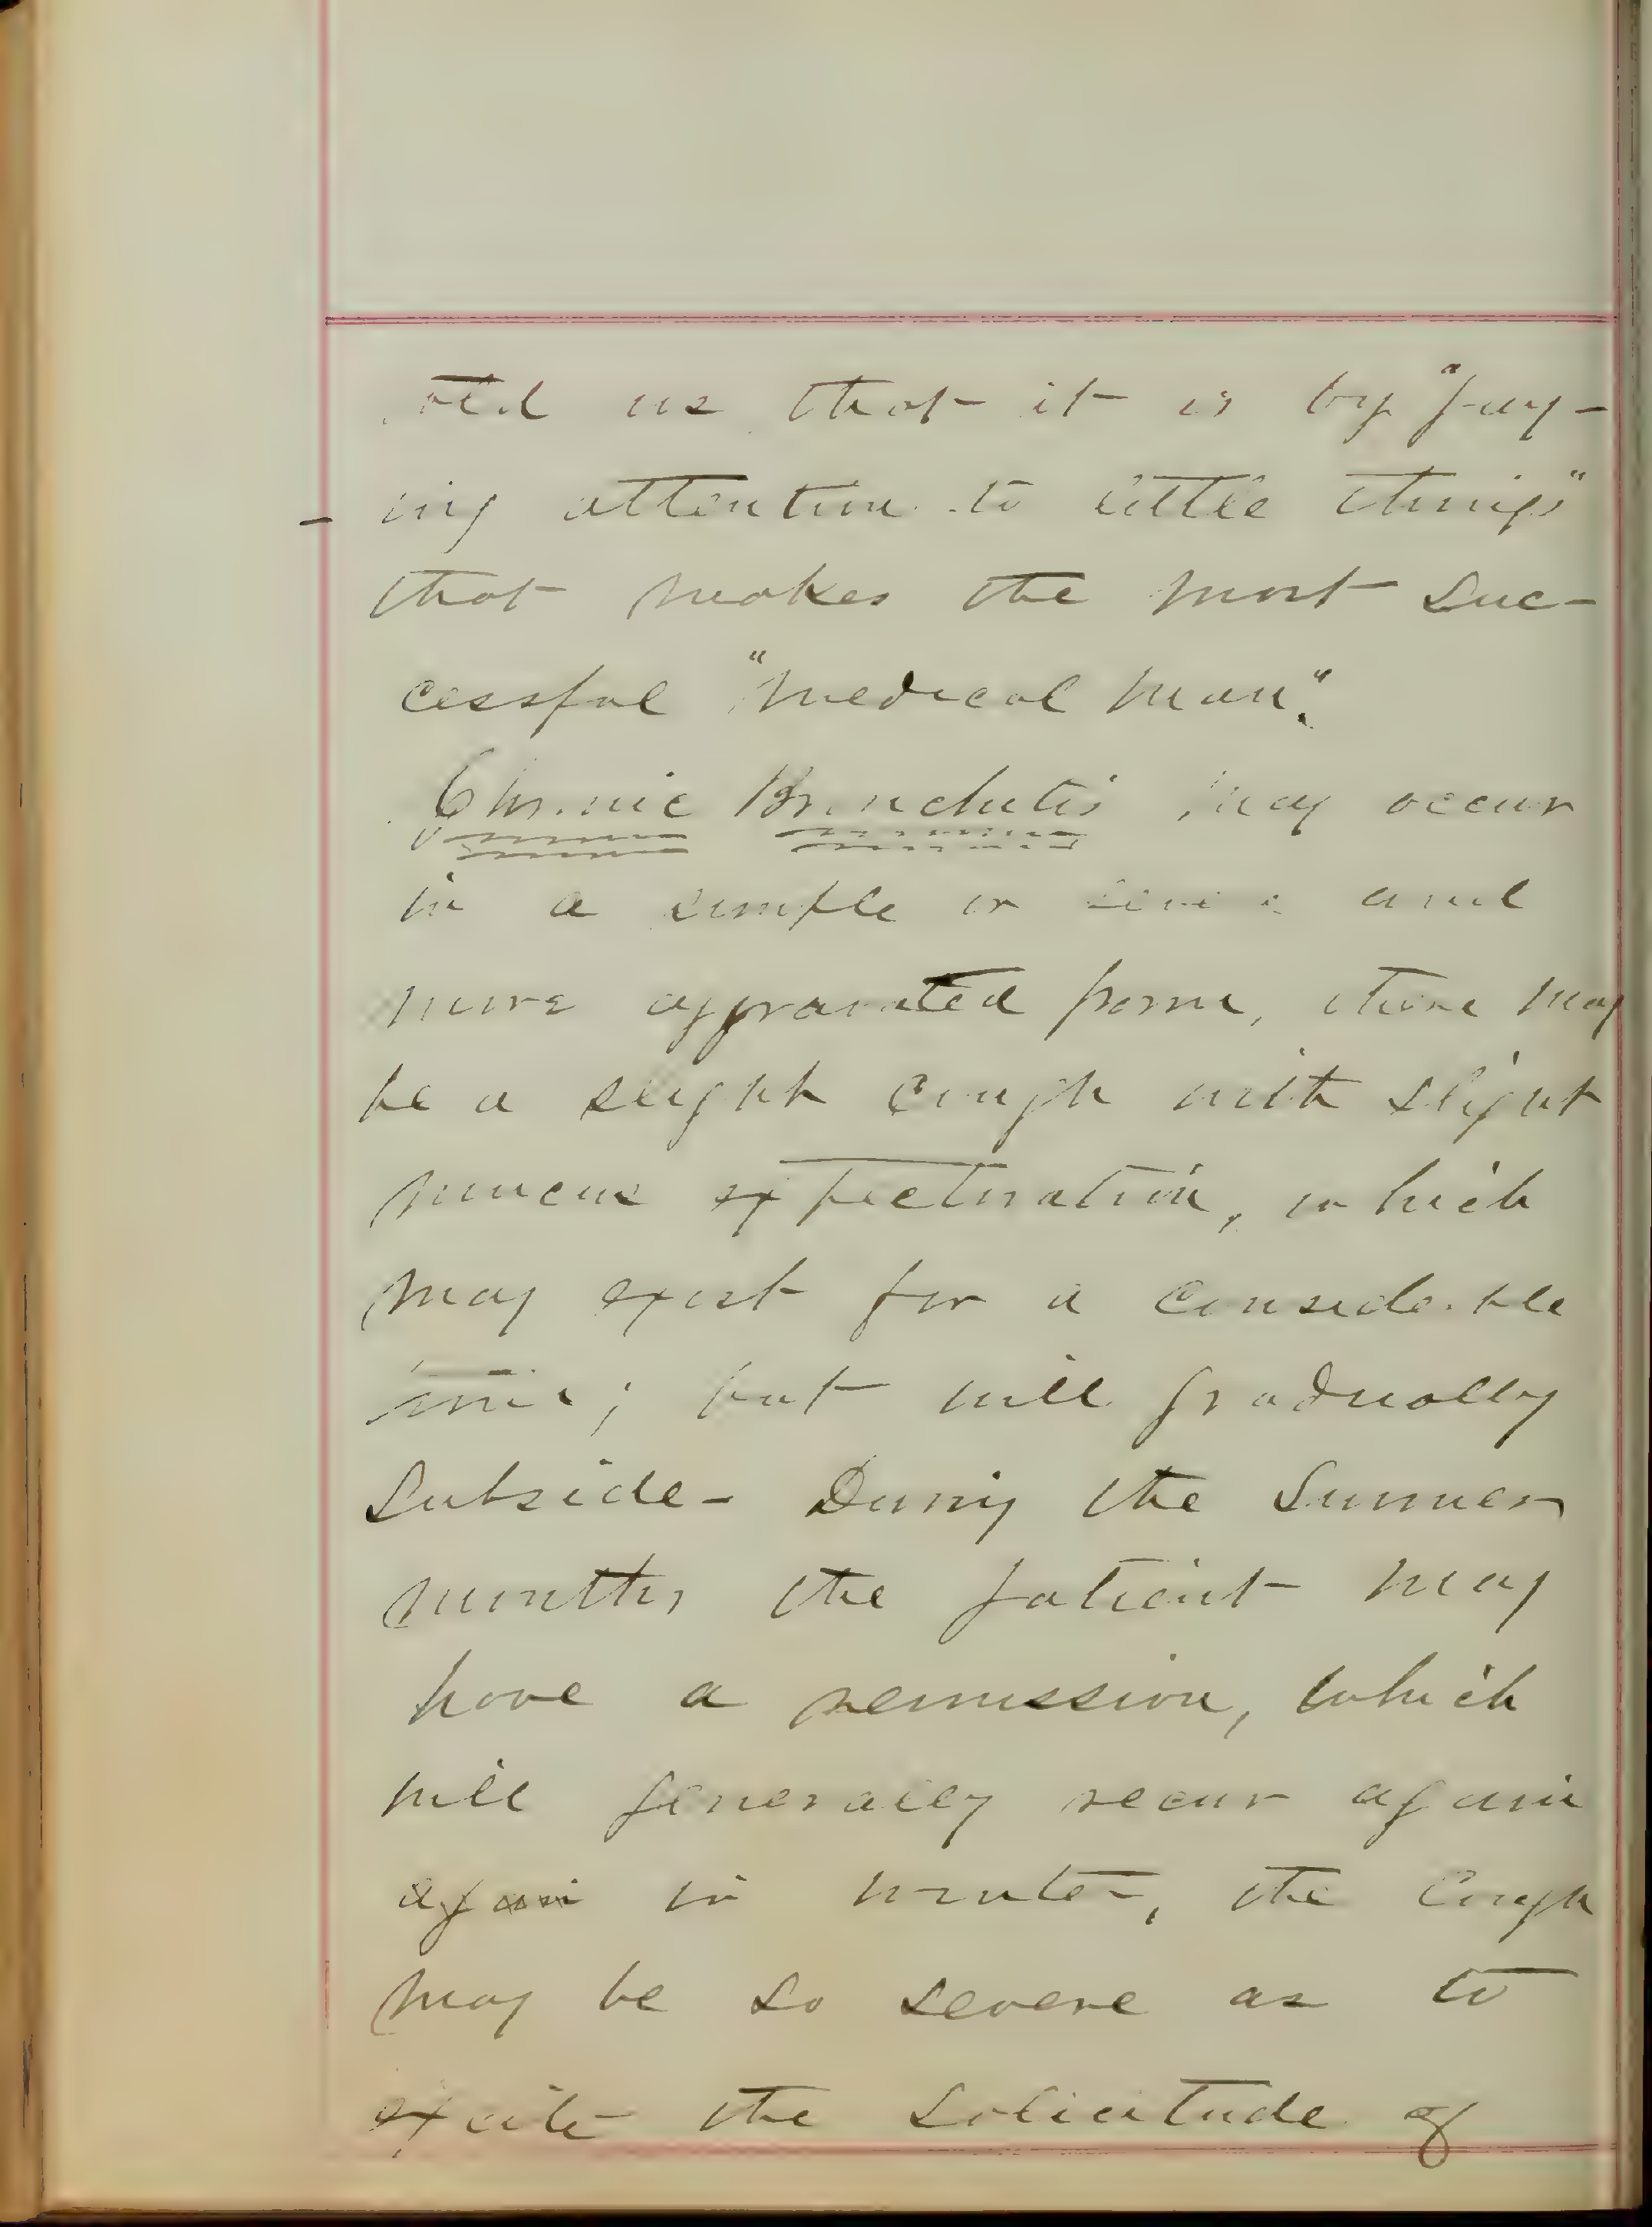 told us that it is by "pay-
-ing attention to little things"
that makes the most suc-
cessful "medical man".
Chronic Bronchitis may occur
in a simple or and
more aggravated form, there may
be a slight cough with slight
mucus expectoration, which
may exist for a considerable
time; but will gradually
subside - During the Summer
months the patient may
have a remission, which
will generally recur again
again in winter, the cough
may be so severe as to
excite the solicitude of